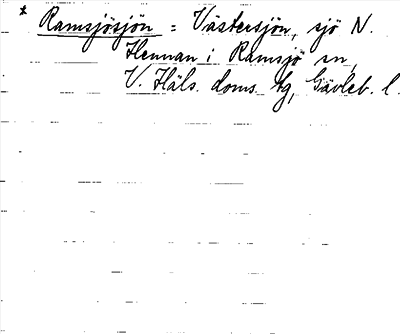 * Ramsjösjön = Västersjön, sjö N.
Hennan i Ramsjö sn,
V. Häls. doms. tg, Gävleb. l.